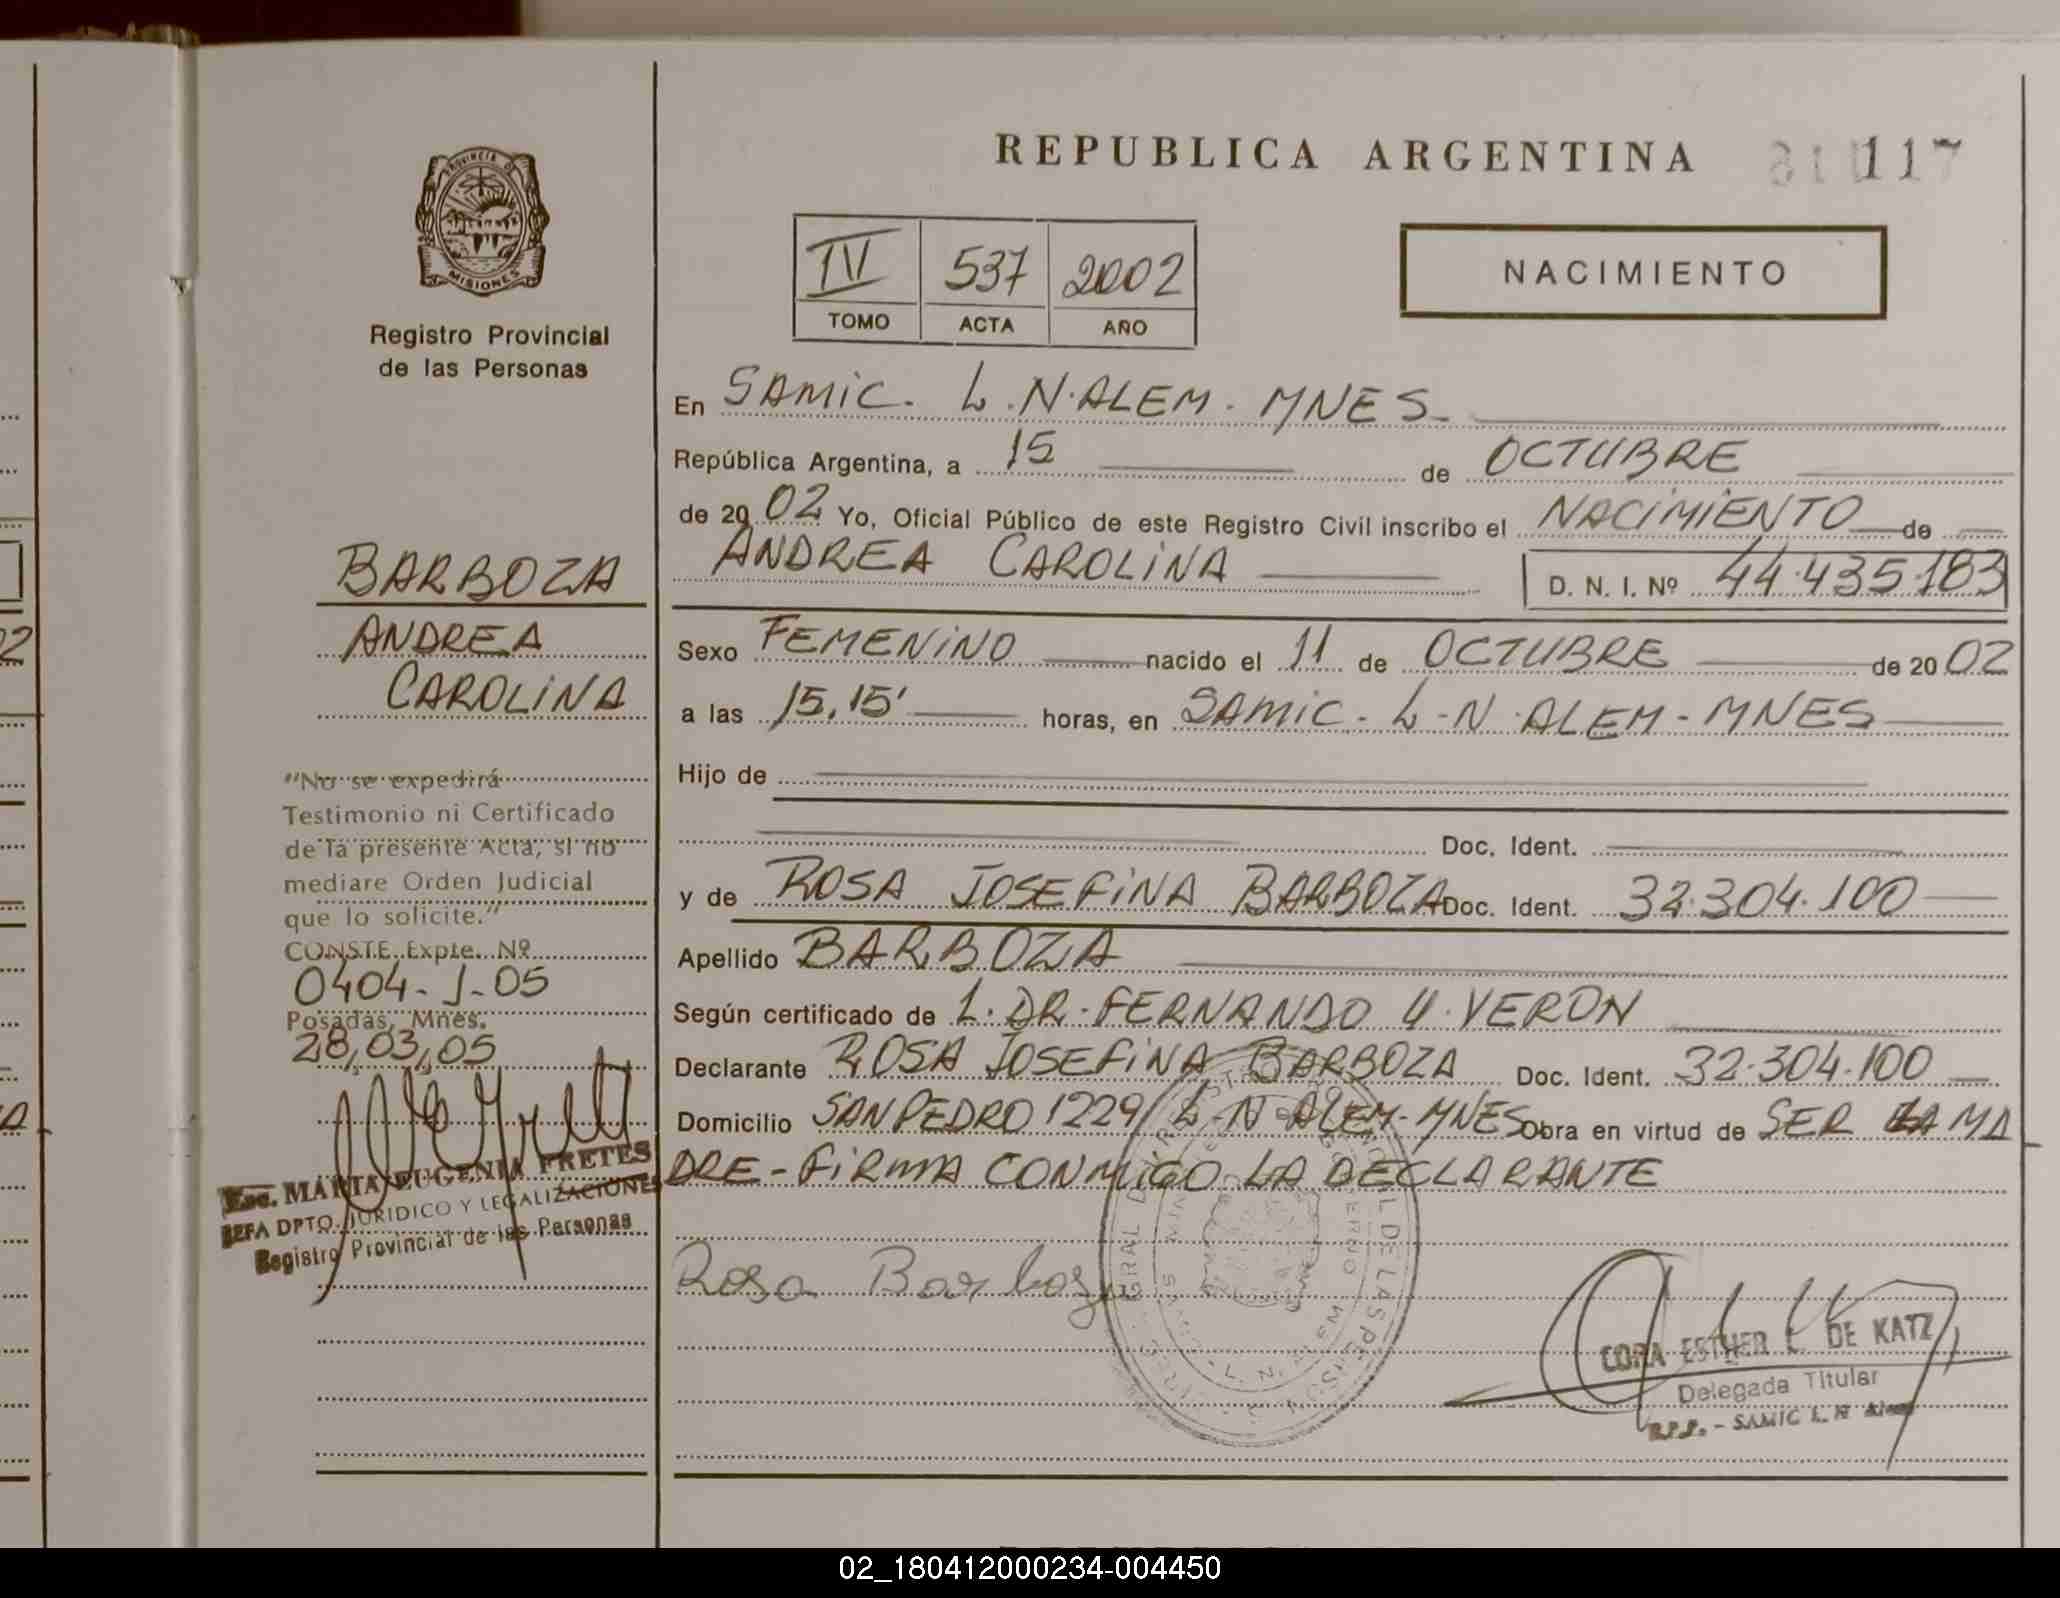 REPUBLICA ARGENTINA
117
PROVINCIA DE
MISIONES
Registro Provincial
de las Personas
IV 537 2002
TOMO ACTA AÑO
NACIMIENTO
En SAMIC. L.N.ALEM. MNES.
República Argentina, a 15 de OCTUBRE
de 2002 Yo, Oficial Público de este Registro Civil inscribo el NACIMIENTO de
ANDREA CAROLINA D. N. I. Nº 44.435.183
Sexo FEMENINO nacido el 11 de OCTUBRE de 2002
a las 15,15' horas, en SAMIC. L.N.ALEM-MNES
Hijo de
Doc. Ident.
y de ROSA JOSEFINA BARBOZA Doc. Ident. 32.304.100
Apellido BARBOZA
Según certificado de L. DR. FERNANDO U. VERON
Declarante ROSA JOSEFINA BARBOZA Doc. Ident. 32.304.100
Domicilio SAN PEDRO 1229 L.N ALEM-MNES Obra en virtud de SER LA MA
DRE-FIRMA CONMIGO LA DECLARANTE
Rosa Barboza
CORA ESTHER L. DE KATZ
Delegada Titular
R.P.P. - SAMIC L. N. Alem
BARBOZA
ANDREA
CAROLINA
"No se expedirá
Testimonio ni Certificado
de la presente Acta, si no
mediare Orden Judicial
que lo solicite."
CONSTE Expte. Nº
0404-J-05
Posadas, Mnes.
28,03,05
Esc. MARIA EUGENIA FRETES
JEFA DPTO. JURIDICO Y LEGALIZACIONES
Registro Provincial de las Personas
02_180412000234-004450